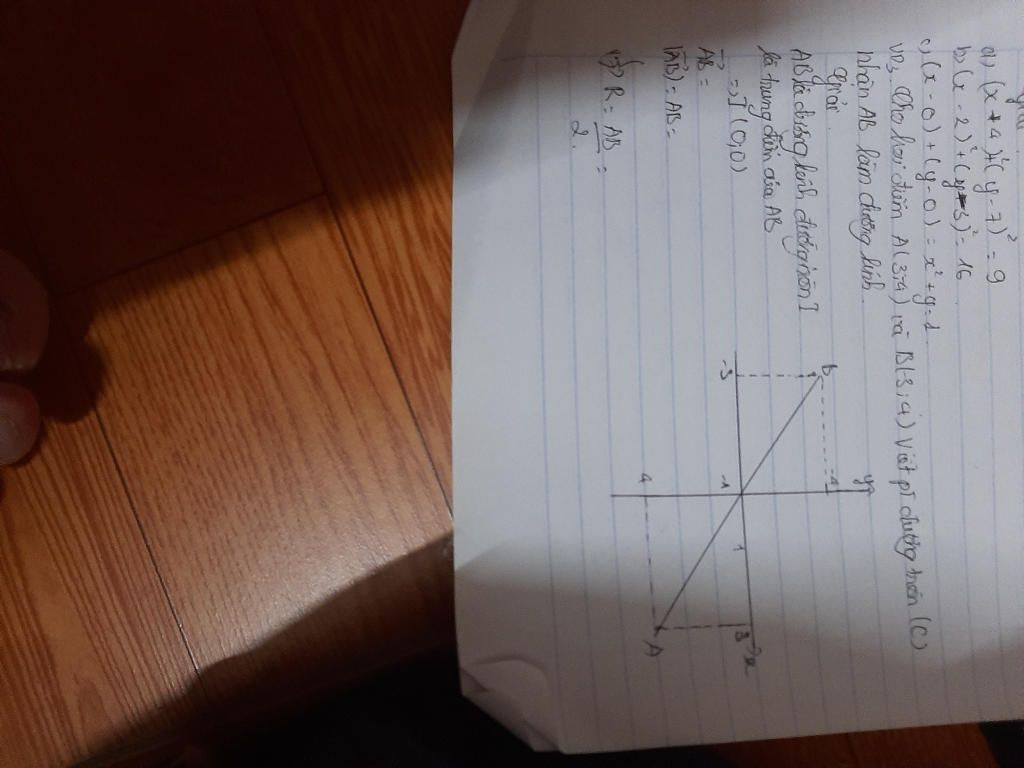 a) (x + 4)² + (y - 7)² = 9
b) (x - 2)² + (y + 3)² = 16
c) (x - 0) + (y - 0) = x² + y = 1
VD3 Cho hai điểm A(3;-4) và B(-3;4) Viết pt đường tròn (C)
nhận AB làm đường kính.
Giải.
AB là đường kính đường tròn I
là trung điểm của AB
=> I (0,0)
AB =
|AB| = AB =
=> R = AB/2 =
y
B
-4
-3
1
3
x
-1
4
A